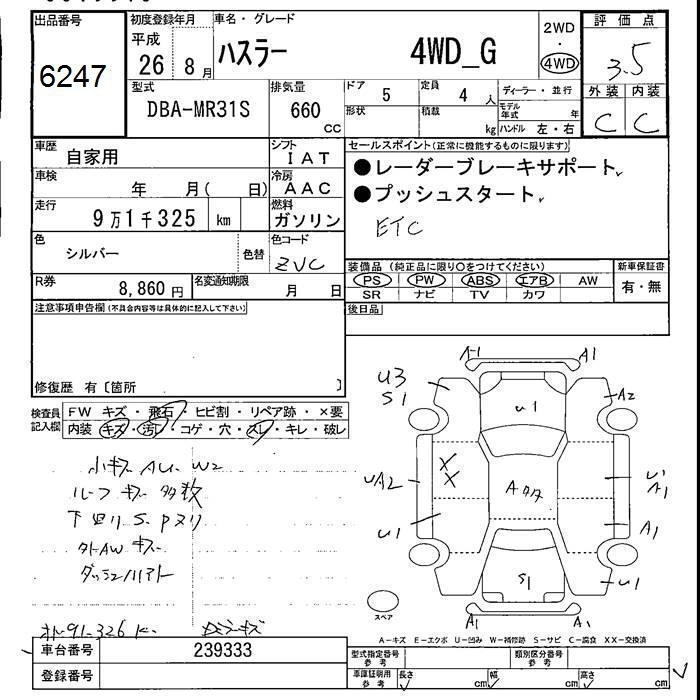 出品番号
6247
初度登録年月
平成
26 8月
車名・グレード
ハスラー 4WD_G
2WD
・
4WD
評価点
3.5
外装 内装
C C
型式
DBA-MR31S
排気量
660
cc
ドア
5
定員
4 人
形状
積載
kg
ディーラー・並行
モデル年式 年
ハンドル 左・右
車歴
自家用
シフト
IAT
車検
年 月( 日)
冷房
AAC
走行
9万1千325 km
燃料
ガソリン
色
シルバー
色替
色コード
ZVC
R券
8,860円
名変通知期限
月 日
セールスポイント(正常に機能するものに限ります)
●レーダーブレーキサポート
●プッシュスタート
ETC
装備品(純正品に限り○をつけてください)
PS PW ABS エアB AW
SR ナビ TV カワ
新車保証書
有・無
後日品
注意事項申告欄(不具合内容等は具体的に記入して下さい)
修復歴 有〔箇所 〕
検査員記入欄
FW キズ・飛石・ヒビ割・リペア跡・×要
内装 キズ・汚レ・コゲ・穴・スレ・キレ・破レ
小キズ AU. W2
ルーフ キズ 多数
下廻り S. Pヌリ
外AW キズ
91-326 K.
A1 A1
U3
S1
A2
U1
X
X
UA2
U1
A1
U1
A1
S1
U1
A1 A1
スペア
A-キズ E-エクボ U-凹み W-補修跡 S-サビ C-腐食 XX-交換済
車台番号
239333
登録番号
型式指定番号
参考
類別区分番号
参考
車庫証明用
参考
長さ cm
幅 cm
高さ cm